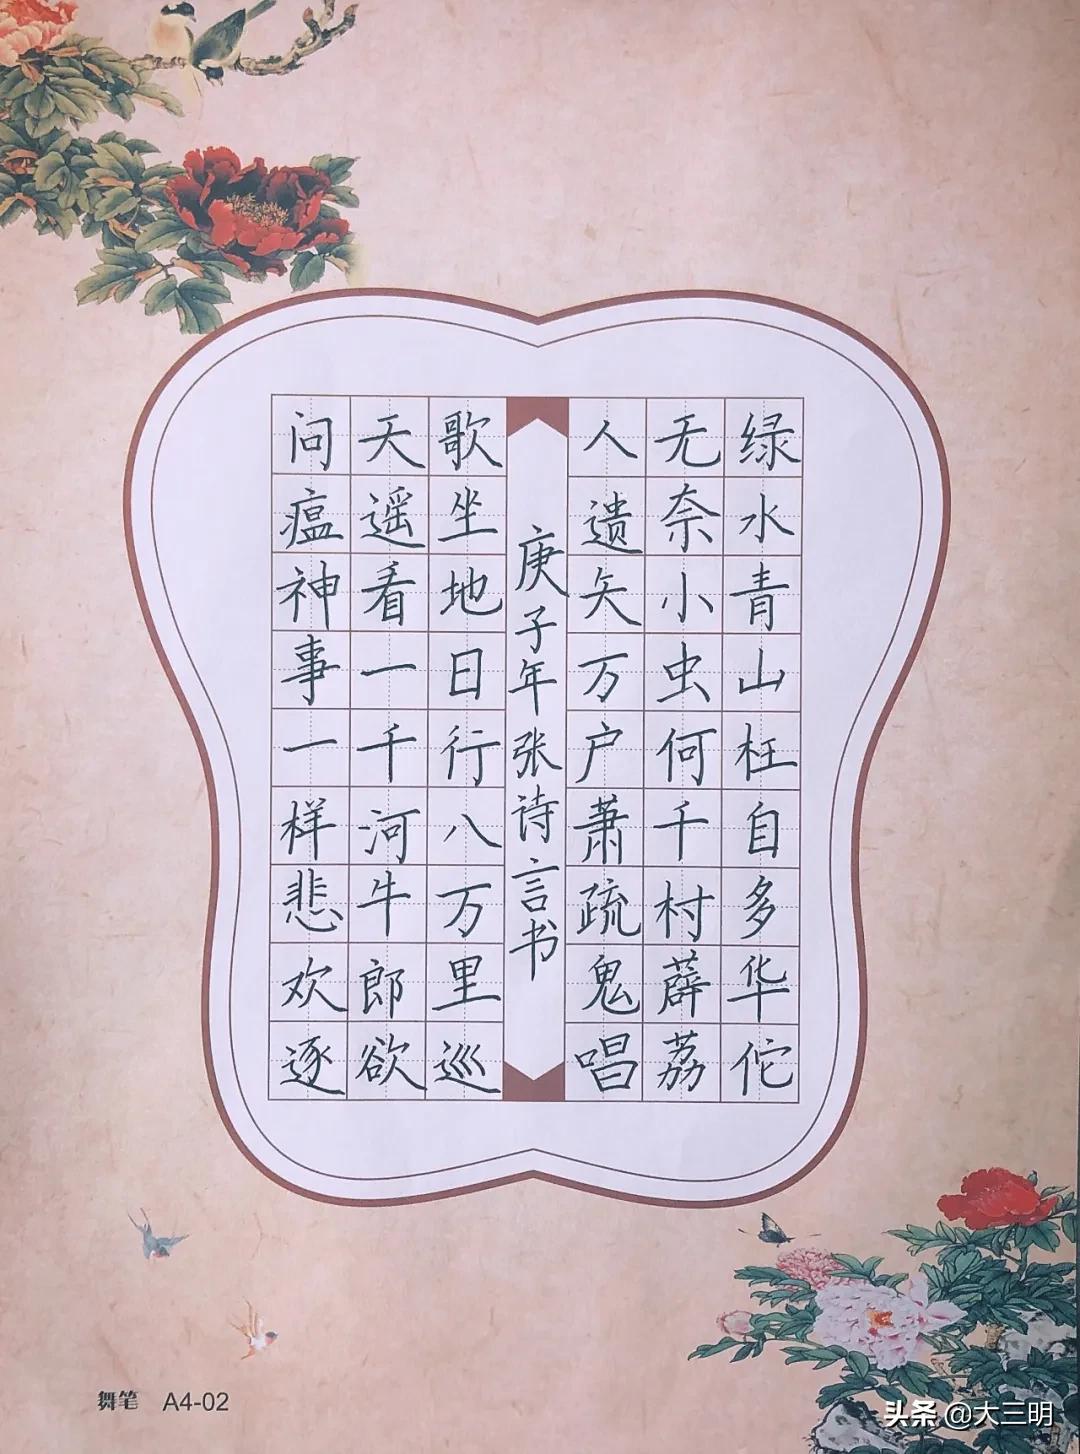 绿水青山枉自多华佗
无奈小虫何千村薜荔
人遗矢万户萧疏鬼唱
歌坐地日行八万里巡
天遥看一千河牛郎欲
问瘟神事一样悲欢逐
庚子年张诗言书
舞笔 A4-02
头条 @大三明